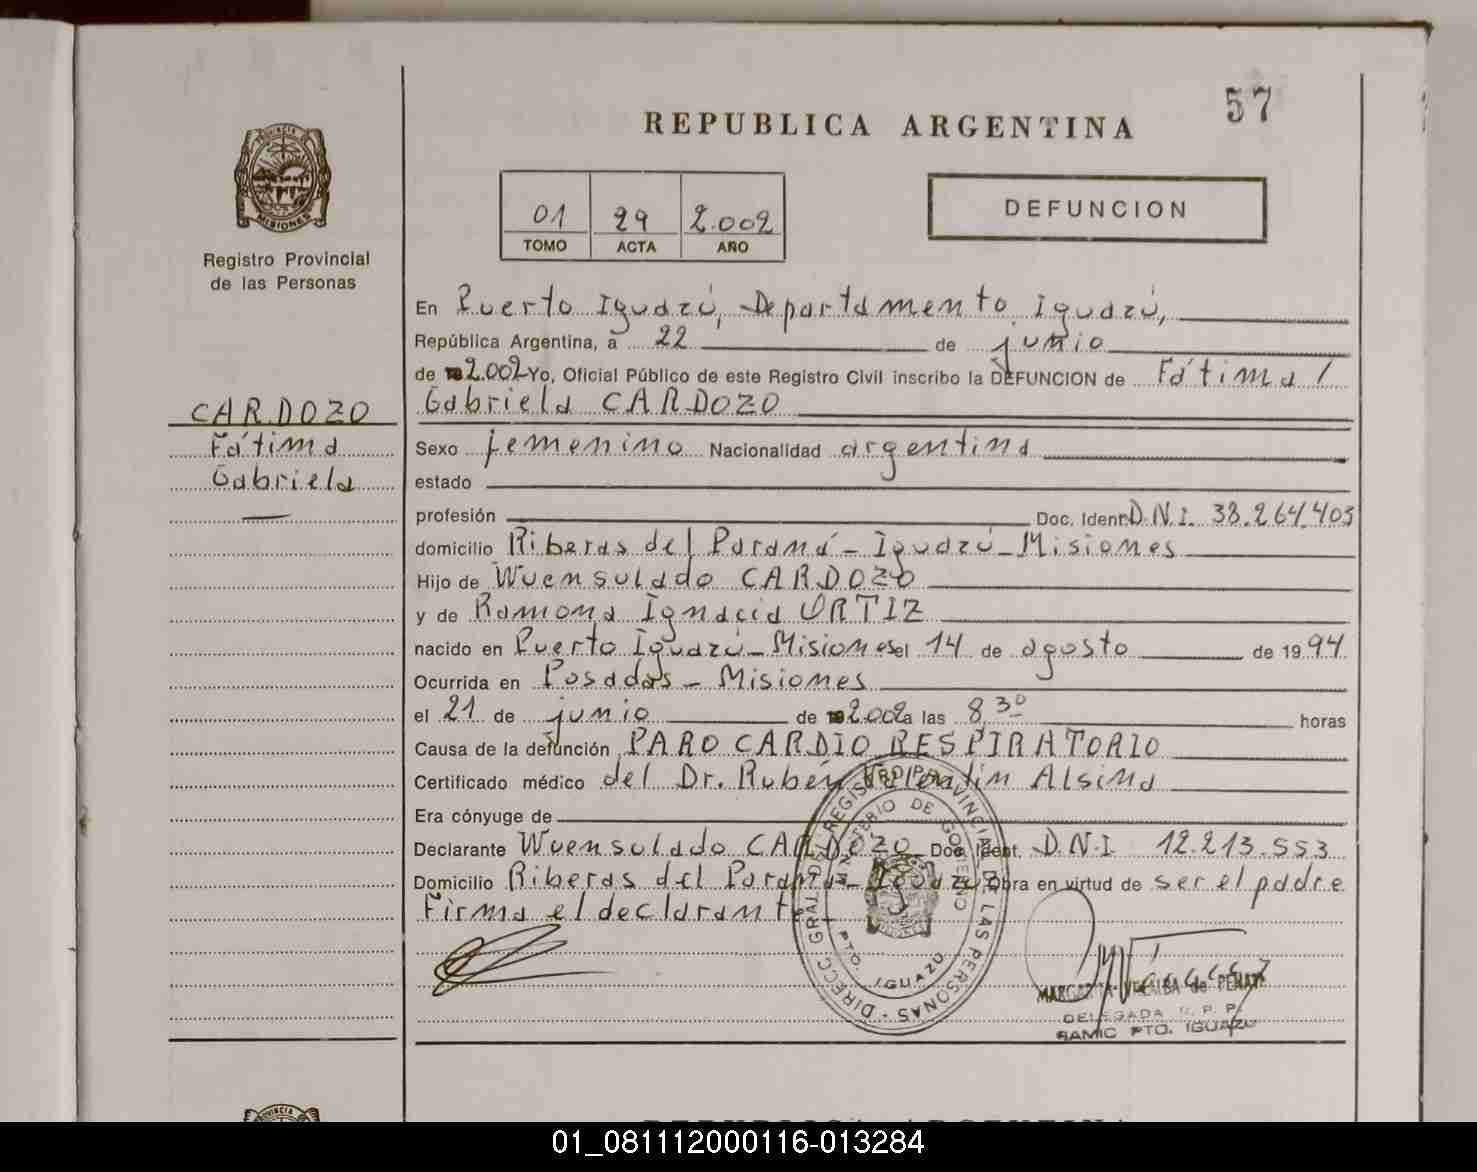 57
REPUBLICA ARGENTINA
PROVINCIA DE
MISIONES
Registro Provincial
de las Personas
01 29 2.002
TOMO ACTA AÑO
DEFUNCION
En Puerto Iguazú, Departamento Iguazú,
República Argentina, a 22 de junio
de 2.002 Yo, Oficial Público de este Registro Civil inscribo la DEFUNCION de Fátima /
Gabriela CARDOZO
CARDOZO
Fátima
Gabriela
Sexo femenino Nacionalidad argentina
estado
profesión Doc. Ident. D.N.I. 38.264.403
domicilio Riberas del Paraná - Iguazú - Misiones
Hijo de Wuensulado CARDOZO
y de Ramona Ignacia ORTIZ
nacido en Puerto Iguazú - Misiones el 14 de agosto de 1994
Ocurrida en Posadas - Misiones
el 21 de junio de 2.002 a las 8,30 horas
Causa de la defunción PARO CARDIO RESPIRATORIO
Certificado médico del Dr. Rubén Alsina
Era cónyuge de
Declarante Wuensulado CARDOZO Doc. Ident. D.N.I 12.213.553
Domicilio Riberas del Paraná - Iguazú Obra en virtud de ser el padre
Firma el declarante
DIRECC GRAL DEL REGISTRO PROVINCIAL DE LAS PERSONAS
MINISTERIO DE GOBIERNO
PTO. IGUAZU
MARGARITA VILLALBA de
DELEGADA R. P. P.
SAMIC PTO. IGUAZU
01_081112000116-013284